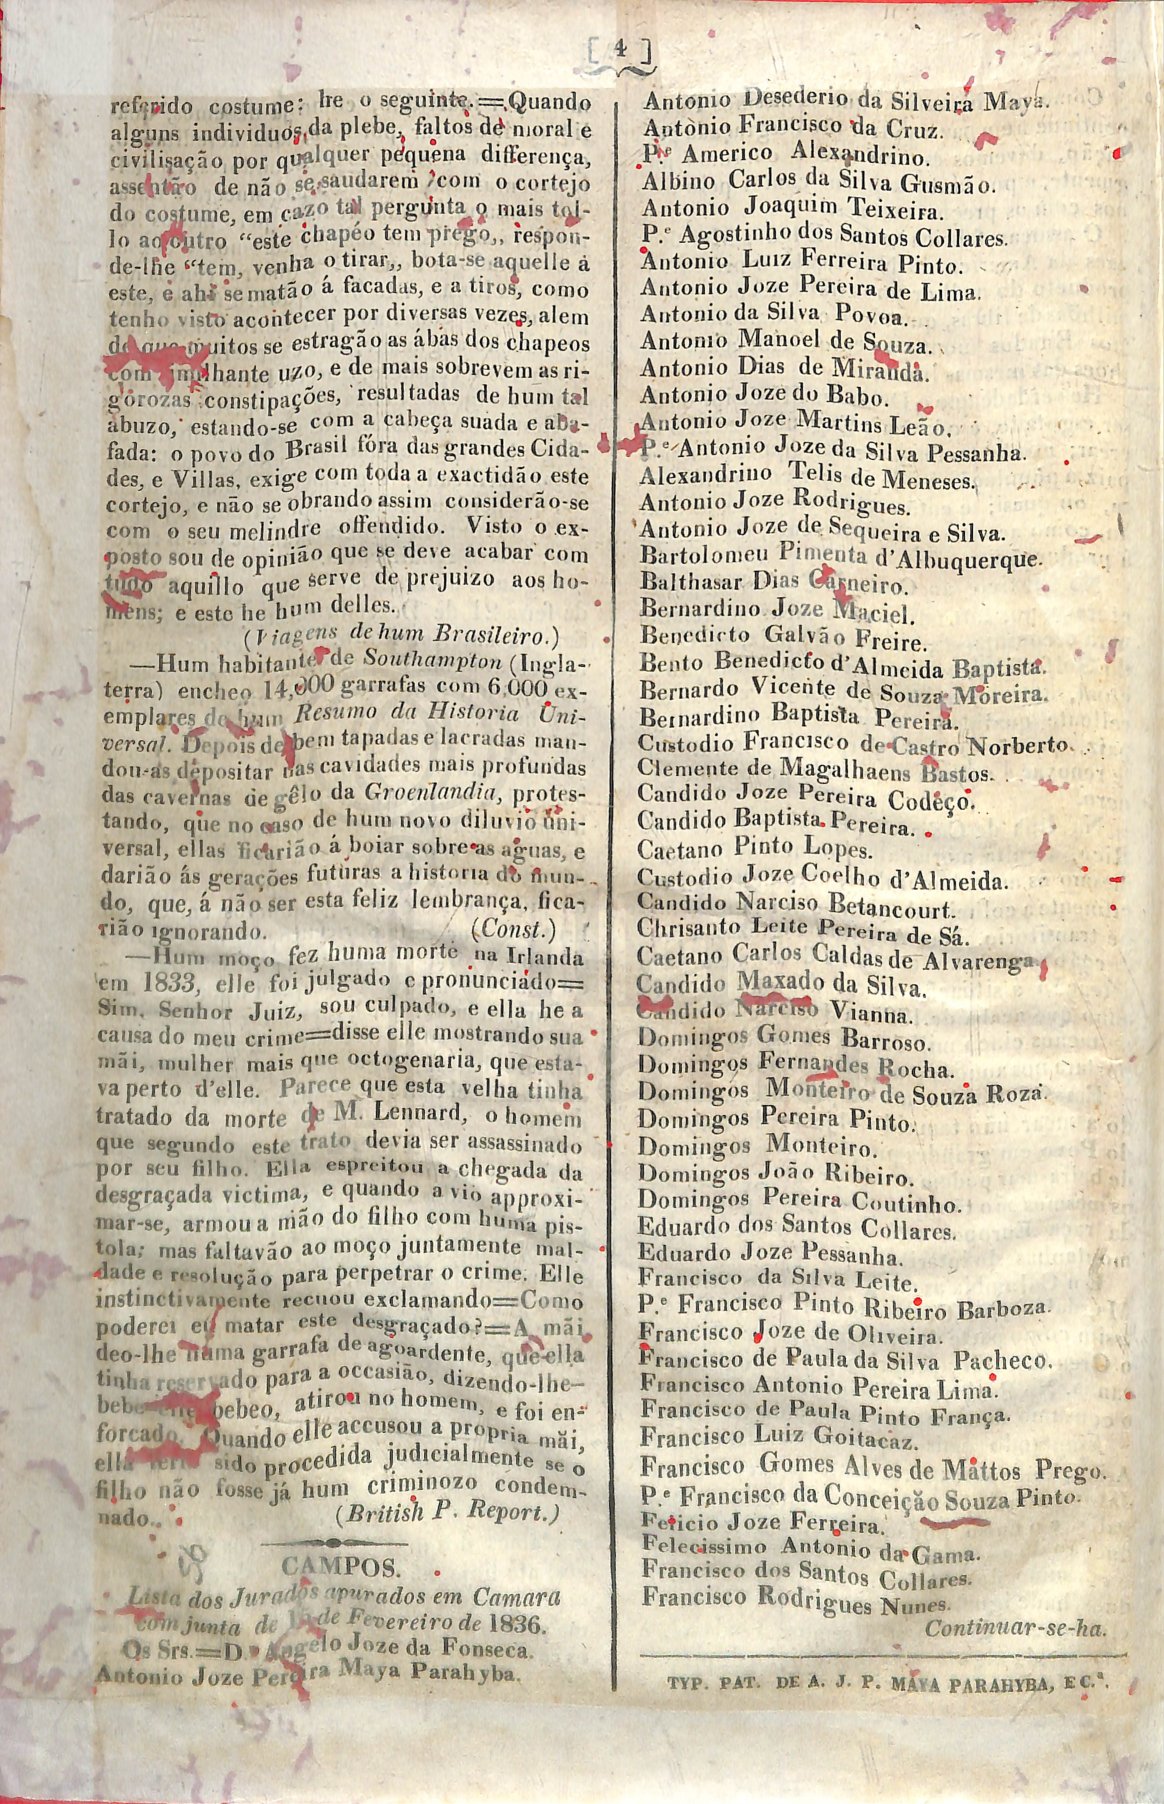 [ 4 ]
referido costume: he o seguinte.=Quando
alguns individuos da plebe, faltos de moral e
civilisação, por qualquer pequena differença,
assentão de não se saudarem com o cortejo
do costume, em cazo tal pergunta o mais tol-
lo ao outro "este chapéo tem prego,, respon-
de-lhe "tem, venha o tirar,, bota-se aquelle á
este, e ahi se matão á facadas, e a tiros, como
tenho visto acontecer por diversas vezes, alem
de que muitos se estragão as ábas dos chapeos
com similhante uzo, e de mais sobrevem as ri-
gorozas constipações, resultadas de hum tal
abuzo, estando-se com a cabeça suada e aba-
fada: o povo do Brasil fóra das grandes Cida-
des, e Villas, exige com toda a exactidão este
cortejo, e não se obrando assim considerão-se
com o seu melindre offendido. Visto o ex-
posto sou de opinião que se deve acabar com
tudo aquillo que serve de prejuizo aos ho-
mens; e este he hum delles.
(Viagens de hum Brasileiro.)
—Hum habitante de Southampton (Ingla-
terra) encheo 14,000 garrafas com 6,000 ex-
emplares de hum Resumo da Historia Uni-
versal. Depois de bem tapadas e lacradas man-
dou-as depositar nas cavidades mais profundas
das cavernas de gêlo da Groenlandia, protes-
tando, que no caso de hum novo diluvio uni-
versal, ellas ficarião á boiar sobre as aguas, e
darião ás gerações futuras a historia do mun-
do, que, á não ser esta feliz lembrança, fica-
rião ignorando. (Const.)
—Hum moço fez huma morte na Irlanda
em 1833, elle foi julgado e pronunciado=
Sim, Senhor Juiz, sou culpado, e ella he a
causa do meu crime=disse elle mostrando sua
mãi, mulher mais que octogenaria, que esta-
va perto d'elle. Parece que esta velha tinha
tratado da morte de M. Lennard, o homem
que segundo este trato devia ser assassinado
por seu filho. Ella espreitou a chegada da
desgraçada victima, e quando a vio approxi-
mar-se, armou a mão do filho com huma pis-
tola; mas faltavão ao moço juntamente mal-
dade e resolução para perpetrar o crime. Elle
instinctivamente recuou exclamando=Como
poderei eu matar este desgraçado?=A mãi
deo-lhe huma garrafa de agoardente, que ella
tinha reservado para a occasião, dizendo-lhe—
bebe—elle bebeo, atirou no homem, e foi en-
forcado. Quando elle accusou a propria mãi,
ella teria sido procedida judicialmente se o
filho não fosse já hum criminozo condem-
nado. (British P. Report.)
CAMPOS.
Lista dos Jurados apurados em Camara
com junta de de Fevereiro de 1836.
Os Srs.=D.r Angelo Joze da Fonseca.
Antonio Joze Pereira Maya Parahyba.
Antonio Desederio da Silveira Maya.
Antonio Francisco da Cruz.
P.e Americo Alexandrino.
Albino Carlos da Silva Gusmão.
Antonio Joaquim Teixeira.
P.e Agostinho dos Santos Collares.
Antonio Luiz Ferreira Pinto.
Antonio Joze Pereira de Lima.
Antonio da Silva Povoa.
Antonio Manoel de Souza.
Antonio Dias de Miranda.
Antonio Joze do Babo.
Antonio Joze Martins Leão.
P.e Antonio Joze da Silva Pessanha.
Alexandrino Telis de Meneses.
Antonio Joze Rodrigues.
Antonio Joze de Sequeira e Silva.
Bartolomeu Pimenta d'Albuquerque.
Balthasar Dias Carneiro.
Bernardino Joze Maciel.
Benedicto Galvão Freire.
Bento Benedicto d'Almeida Baptista.
Bernardo Vicente de Souza Moreira.
Bernardino Baptista Pereira.
Custodio Francisco de Castro Norberto.
Clemente de Magalhaens Bastos.
Candido Joze Pereira Codeço.
Candido Baptista Pereira.
Caetano Pinto Lopes.
Custodio Joze Coelho d'Almeida.
Candido Narciso Betancourt.
Chrisanto Leite Pereira de Sá.
Caetano Carlos Caldas de Alvarenga
Candido Maxado da Silva.
Candido Narciso Vianna.
Domingos Gomes Barroso.
Domingos Fernandes Rocha.
Domingos Monteiro de Souza Roza.
Domingos Pereira Pinto.
Domingos Monteiro.
Domingos João Ribeiro.
Domingos Pereira Coutinho.
Eduardo dos Santos Collares.
Eduardo Joze Pessanha.
Francisco da Silva Leite.
P.e Francisco Pinto Ribeiro Barboza.
Francisco Joze de Oliveira.
Francisco de Paula da Silva Pacheco.
Francisco Antonio Pereira Lima.
Francisco de Paula Pinto França.
Francisco Luiz Goitacaz.
Francisco Gomes Alves de Mattos Prego.
P.e Francisco da Conceição Souza Pinto.
Felicio Joze Ferreira.
Felecissimo Antonio da Gama.
Francisco dos Santos Collares.
Francisco Rodrigues Nunes.
Continuar-se-ha.
TYP. PAT. DE A. J. P. MAYA PARAHYBA, E C.a.